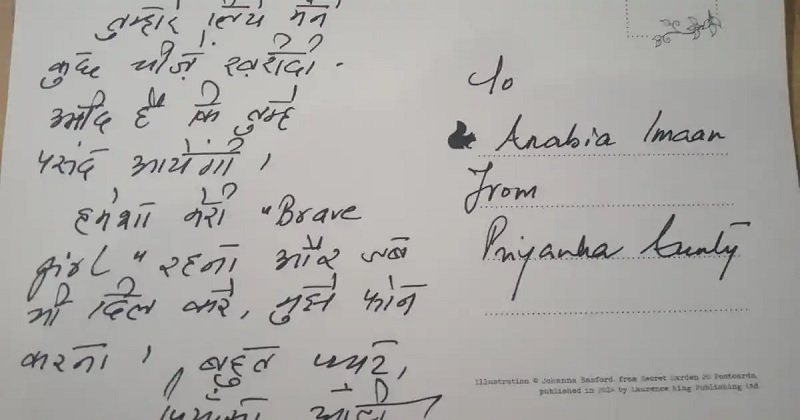 तुम्हारे लिये मैंने
कुछ चीज़ें खरीदी.
उम्मीद है कि तुम्हें
पसंद आयेंगी।
हमेशा मेरी "Brave
girl" रहना और जब
भी दिल करे, मुझे फोन
करना। बहुत प्यार,
प्रियंका आंटी
To
Anabia Imaan
From
Priyanka Aunty
Illustration © Johanna Basford from Secret Garden 20 Postcards,
published in 2014 by Laurence King Publishing Ltd